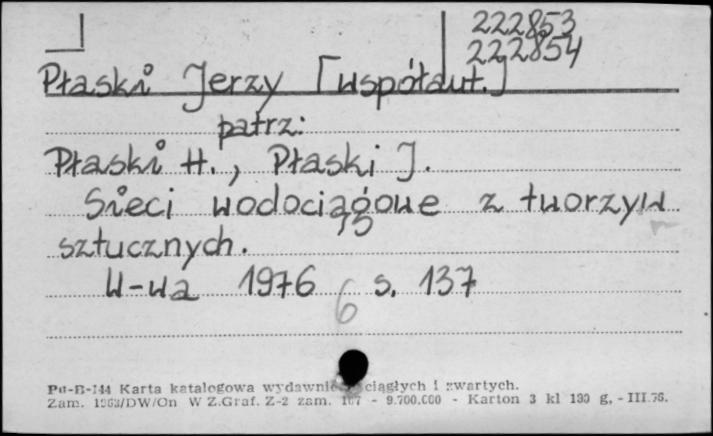 222853
222854
Płaski Jerzy [współaut.]
patrz:
Płaski H., Płaski J.
Sieci wodociągowe z tworzyw
sztucznych.
W-wa 1976 s. 137
6
Pu-B-144 Karta katalogowa ciągłych i zwartych.
Zam. W Z.Graf. Z-2 zam. - 9.700.000 - Karton 3 kl g. - III.76.